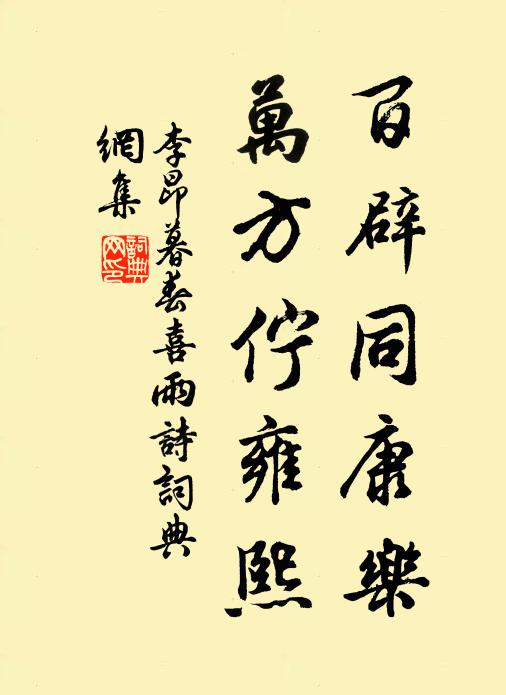 百辟同康樂
萬方佇雍熙
李昂暮春喜雨詩詞典
網集
詞典
网印